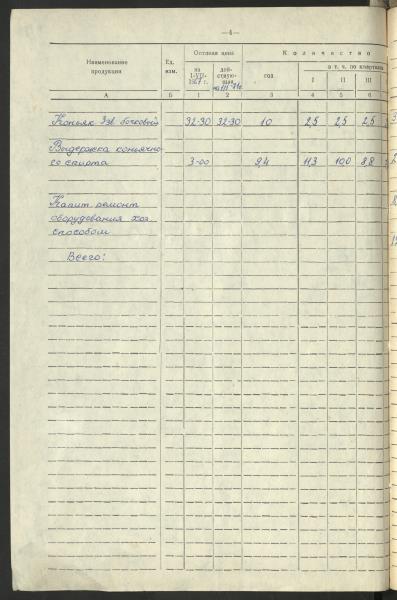 —4—
Наименование продукции
Ед. изм.
Оптовая цена
на 1-VII-1967 г.
действующая
Количество
год
в т. ч. по кварталам
I II III
А Б 1 2 3 4 5 6
Коньяк 3зв. бочковый 32-30 32-30 10 2,5 2,5 2,5
Выдержка коньячно-
го спирта 3-00 9,4 11,3 10,0 8,8
Капит. ремонт
оборудования хоз.
способом
Всего: